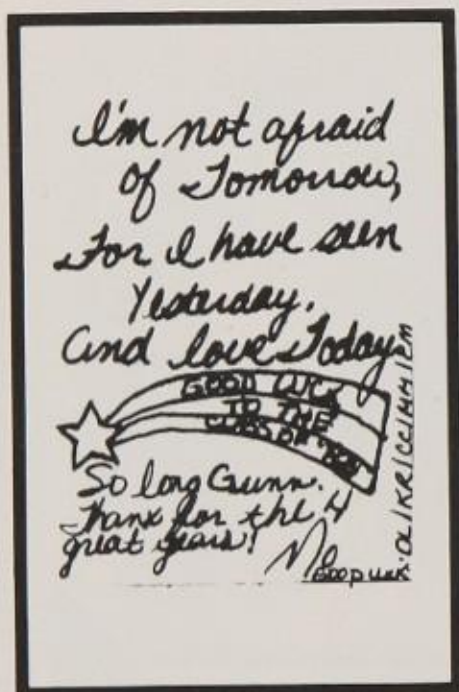 I'm not afraid
of Tomorrow,
For I have seen
Yesterday.
And love Today
GOOD LUCK
TO THE
CLASS OF
So long Gunn.
Thanx for the 4
great years!